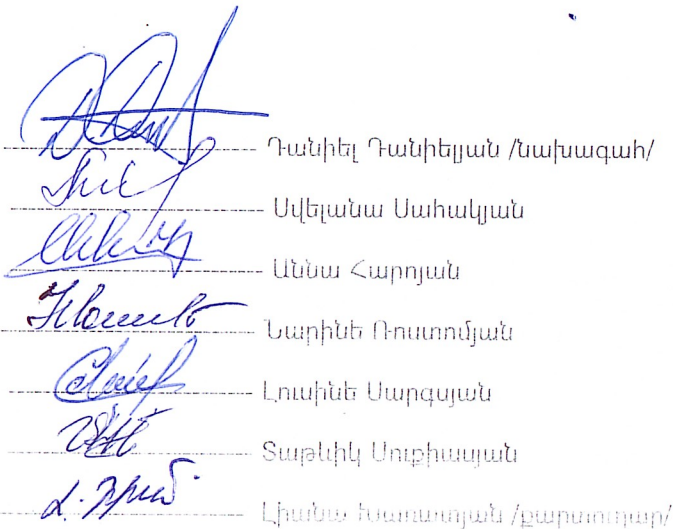 Դանիել Դանիելյան /նախագահ/
Սվելանա Սահակյան
Աննա Հարոյան
Նարինե Ռոստոմյան
Լուսինե Սարգսյան
Տաթևիկ Սուքիասյան
Լիանա Խառատյան /քարտուղար/